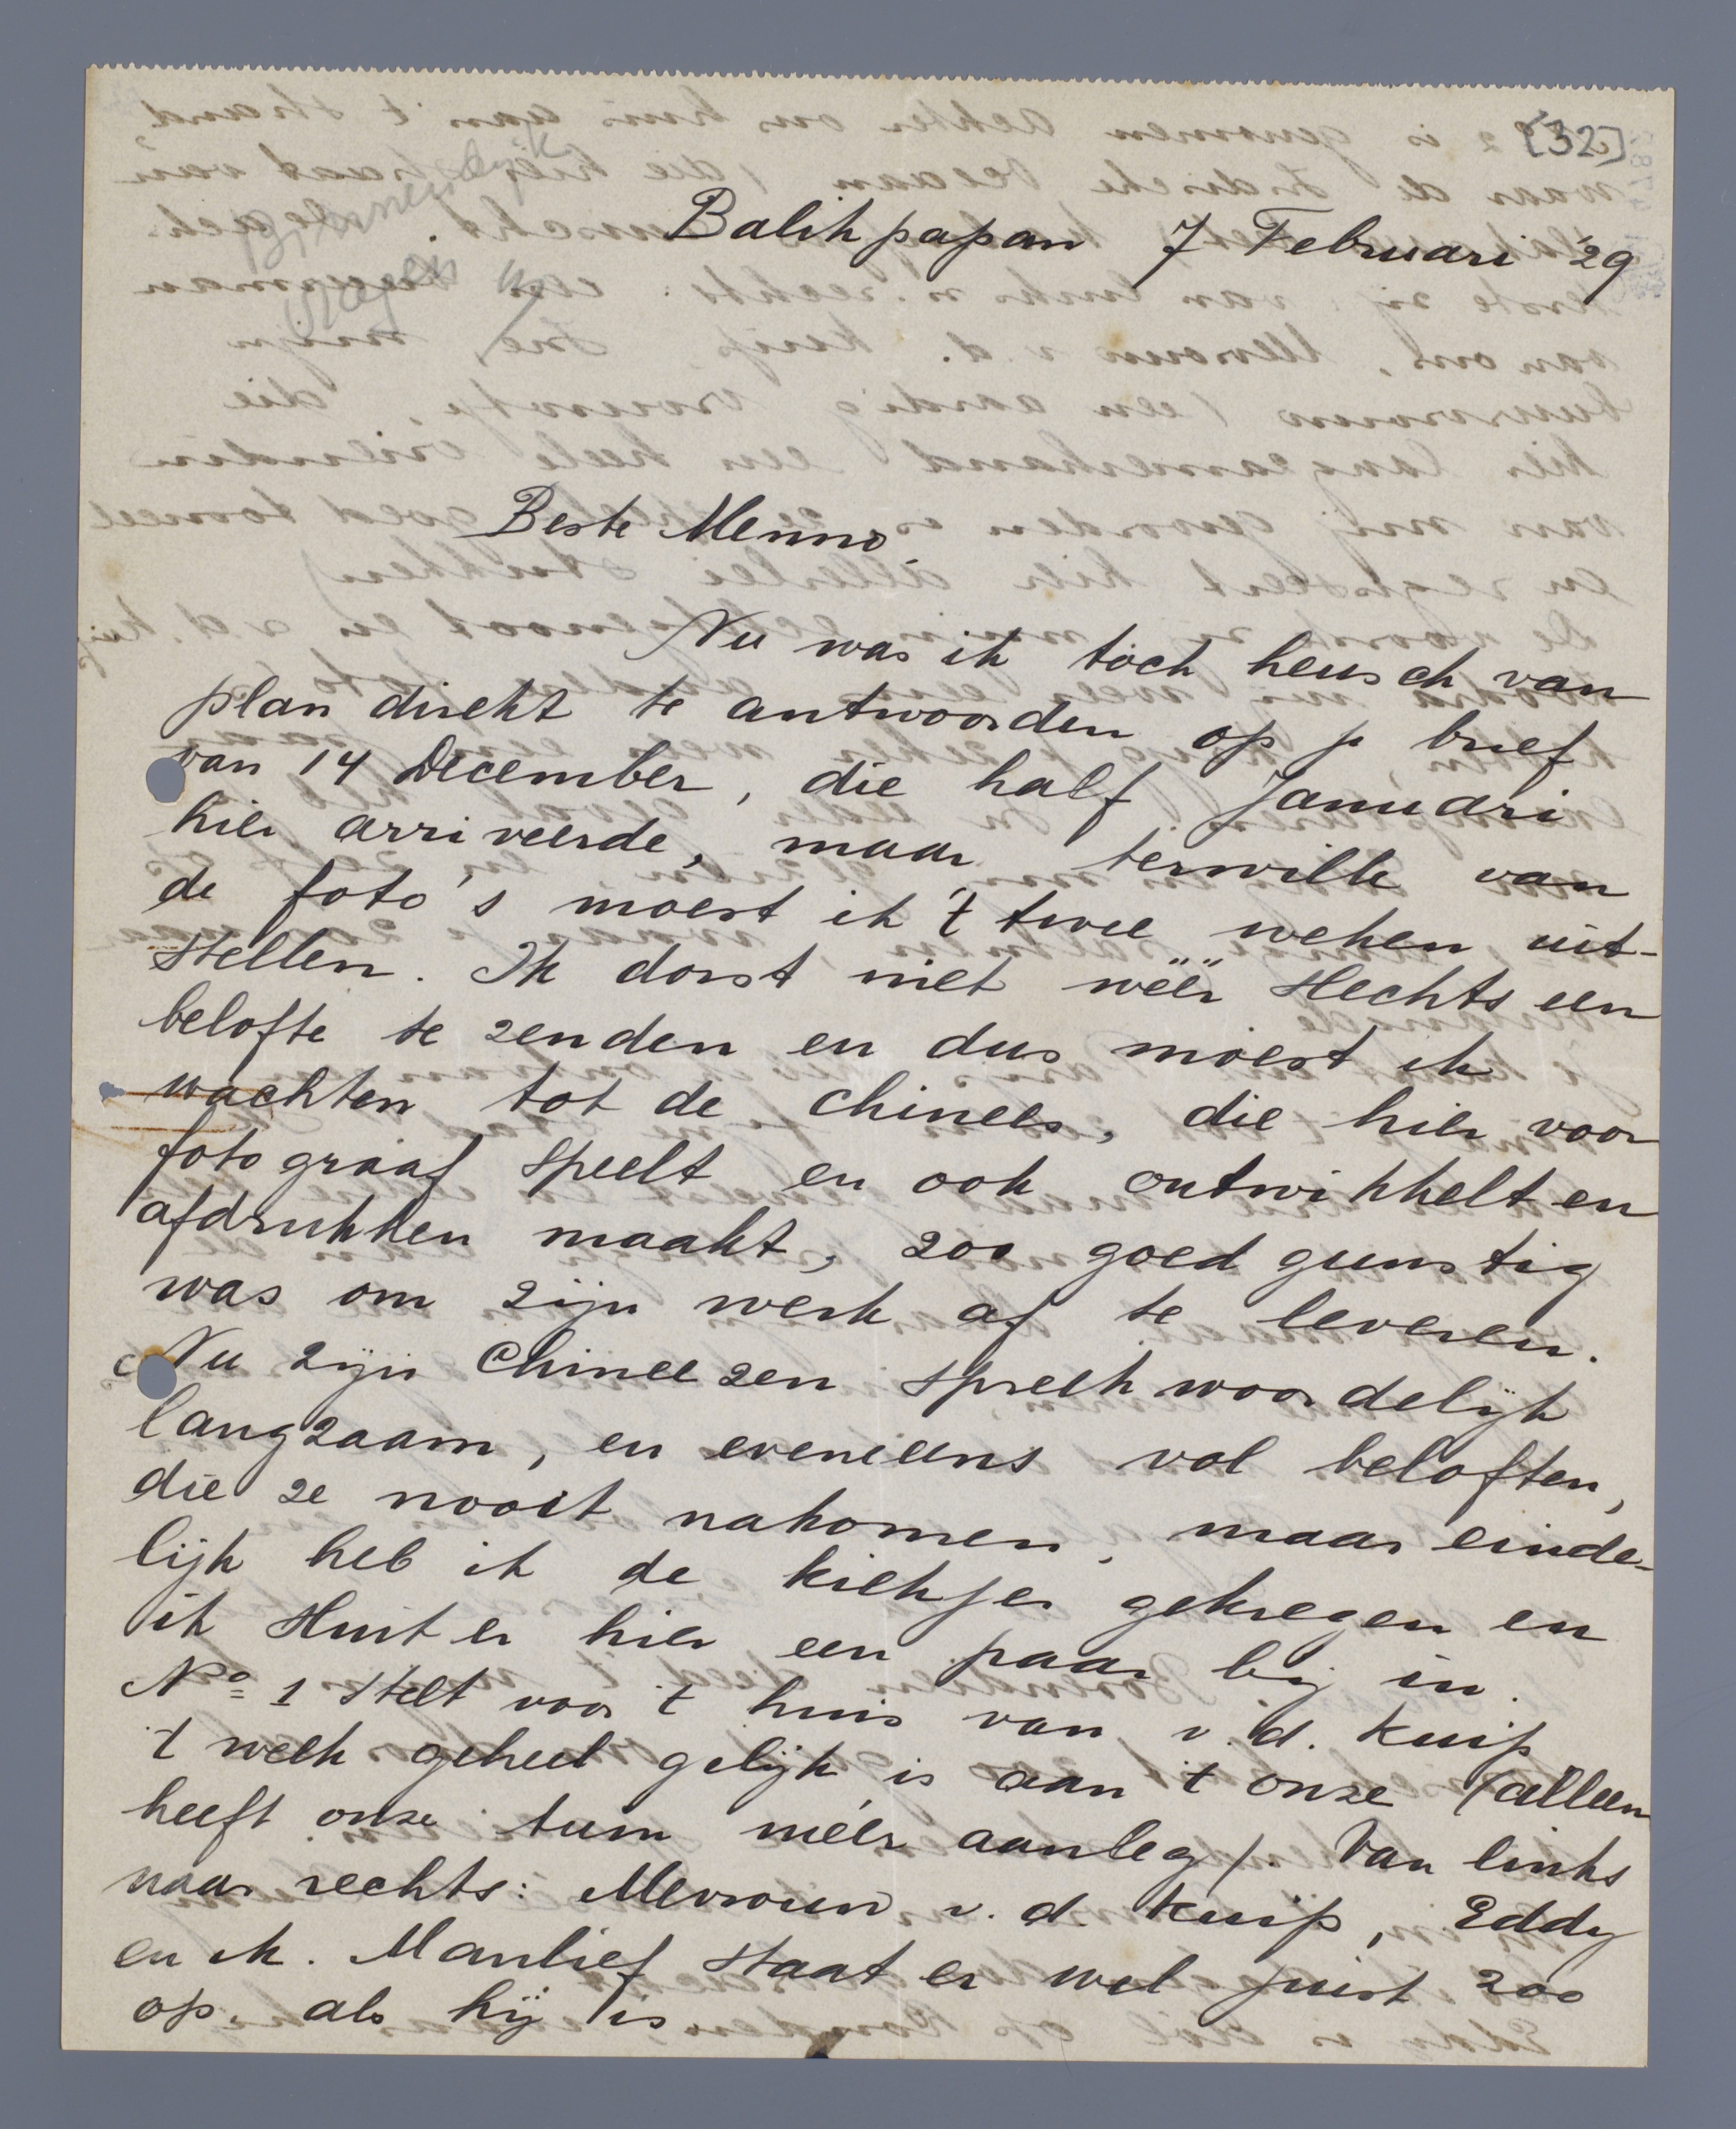 [32]
Balikpapan 7 Februari '29
Beste Menno,
Nu was ik toch heusch van
plan direkt te antwoorden op je brief
van 14 December, die half Januari
hier arriveerde, maar terwille van
de foto's moest ik 't twee weken uit-
stellen. Ik dorst niet wéér slechts een
belofte te zenden en dus moest ik
wachten tot de chinees, die hier voor
fotograaf speelt en ook ontwikkelt en
afdrukken maakt, zoo goedgunstig
was om zijn werk af te leveren.
Nu zijn Chineezen spreekwoordelijk
langzaam, en eveneens vol beloften,
die ze nooit nakomen, maar einde-
lijk heb ik de kiekjes gekregen en
ik sluit er hier een paar bij in.
No 1 stelt voor 't huis van v.d. Kuip
't welk geheel gelijk is aan 't onze (alleen
heeft onze tuin méér aanleg). Van links
naar rechts: Mevrouw v.d. Kuip, Eddy
en ik. Manlief staat er wel juist zoo
op, als hij is